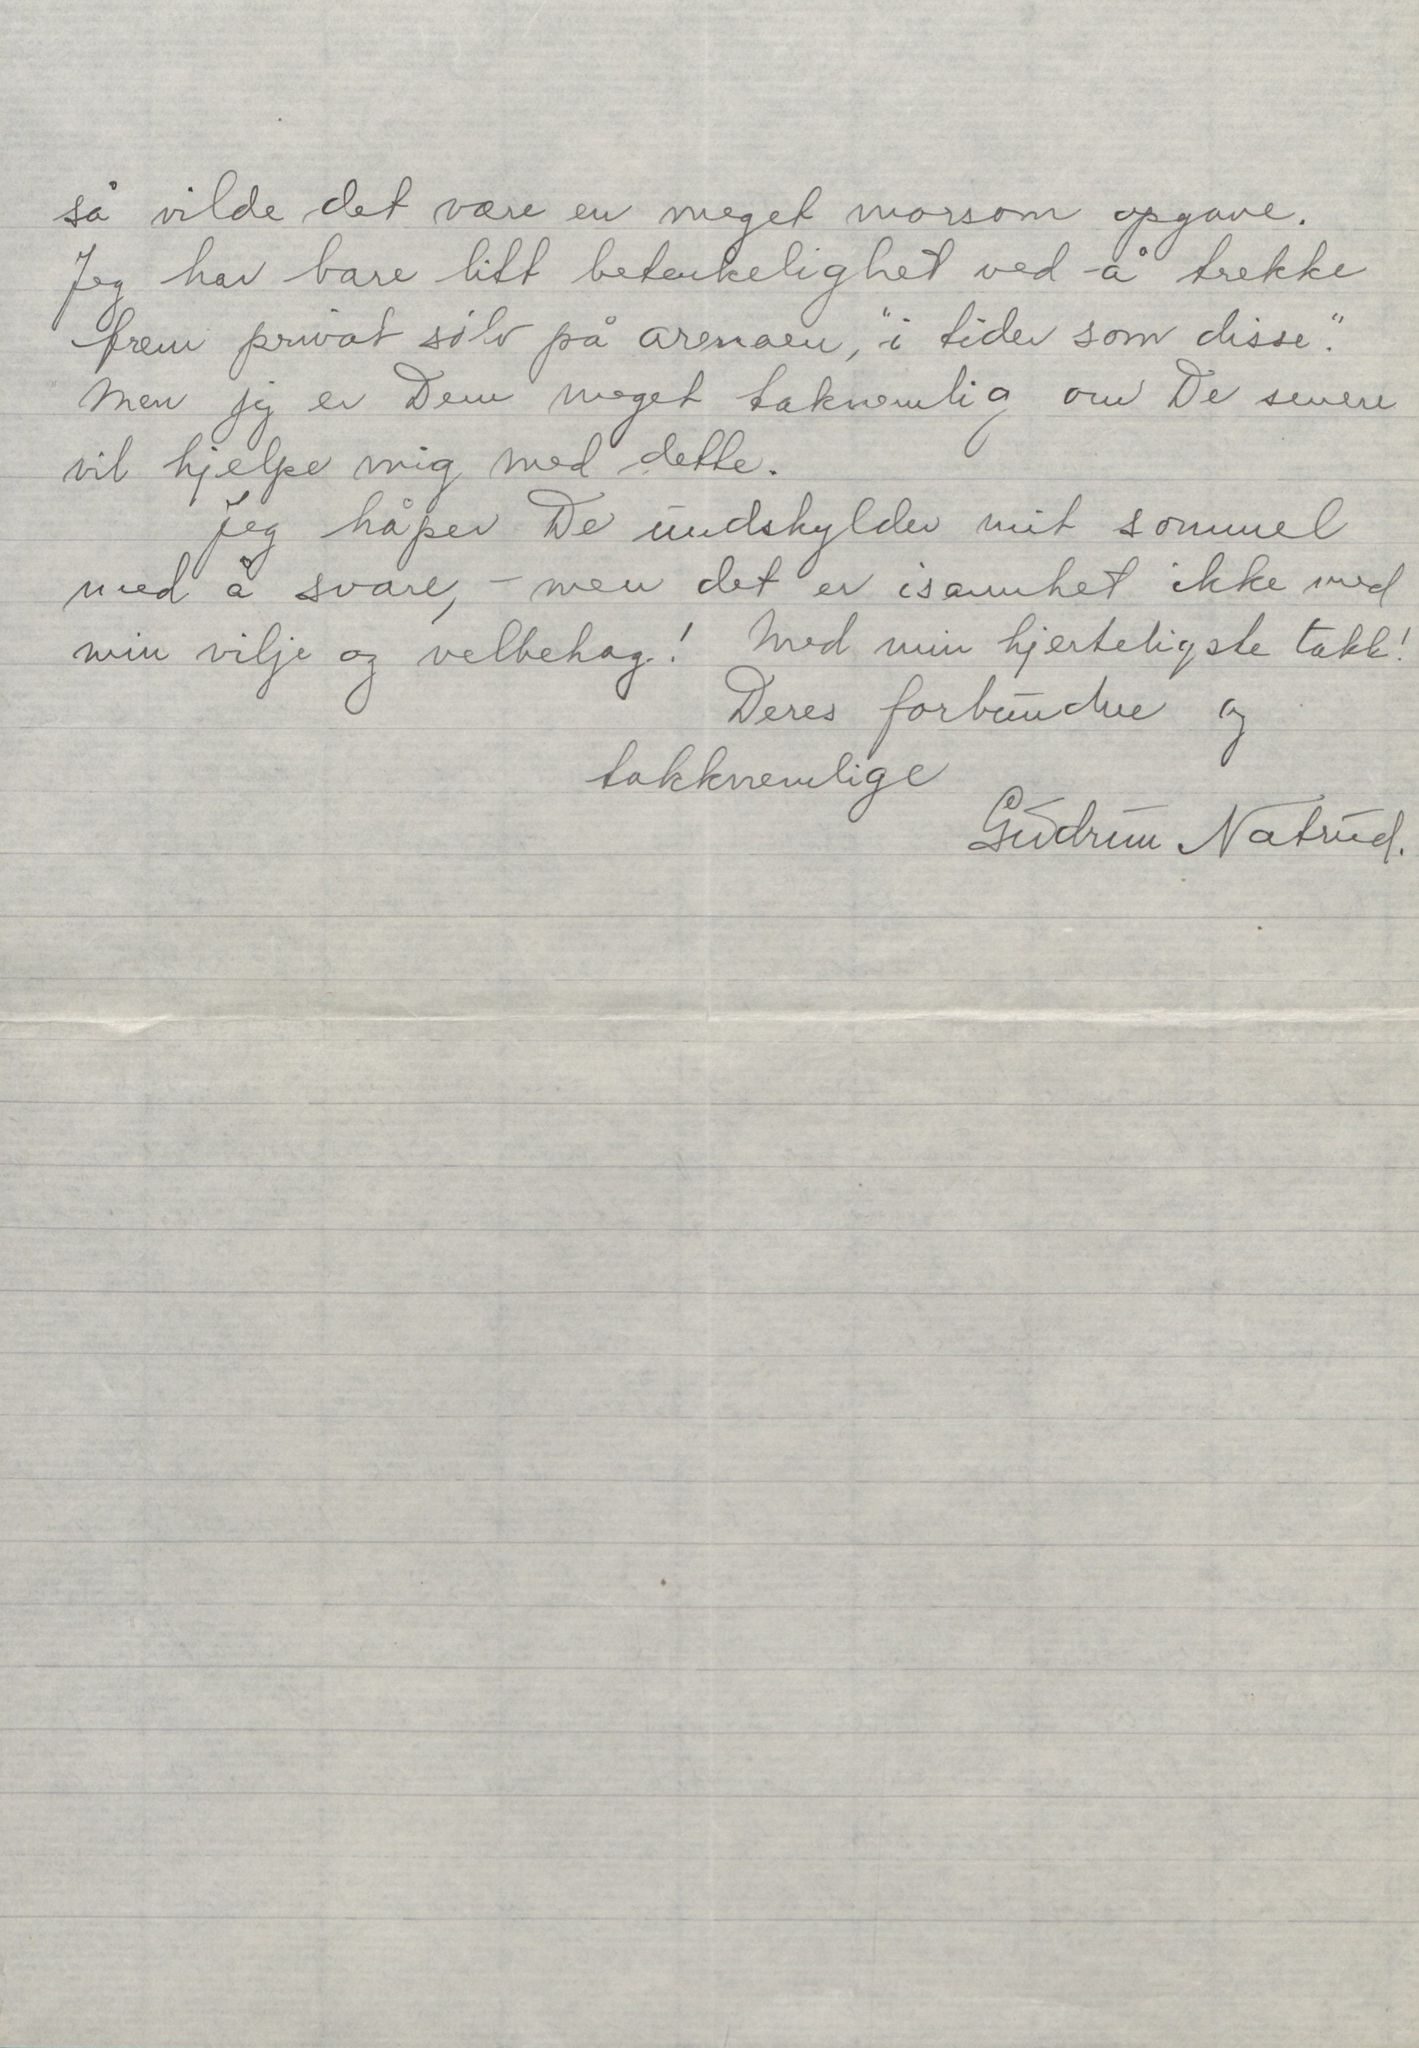 så vilde det være en meget morsom opgave.
Jeg har bare litt betenkelighet ved å trekke
frem privat sølv på arenaen, "i tider som disse".
Men jeg er Dem meget taknemlig om De senere
vil hjelpe mig med dette.
Jeg håper De undskylder mit sommel
med å svare, - men det er isannhet ikke med
min vilje og velbehag! Med min hjerteligste takk!
Deres forbundne og
takknemlige
Gudrun Natrud.